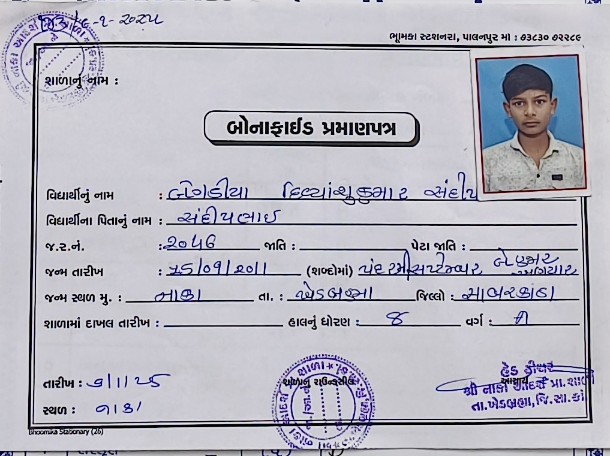 ૬-૧-૨૦૨૫
ભૂમિકા સ્ટેશનરી, પાલનપુર મો : ૭૩૮૩૦ ૭૨૨૮૯
શાળાનું નામ :
બોનાફાઈડ પ્રમાણપત્ર
વિદ્યાર્થીનું નામ : દિવ્યાંશુકુમાર સંદીપ
વિદ્યાર્થીના પિતાનું નામ : સંદીપભાઈ
જ.ર.નં. : ૨૦૫૬ જાતિ : પેટા જાતિ :
જન્મ તારીખ : ૧૫/૦૯/૨૦૧૧ (શબ્દોમાં) પંદરમી સપ્ટેમ્બર બે હજાર અગિયાર
જન્મ સ્થળ મુ. : નાકા તા. : ખેડબ્રહ્મા જિલ્લો : સાબરકાંઠા
શાળામાં દાખલ તારીખ : હાલનું ધોરણ : ૮ વર્ગ :
તારીખ : ૭/૧/૨૫ શાળાનું રાઉન્ડસીલ હેડ ટીચર
આચાર્ય
શ્રી નાકા આદર્શ પ્રા.શાળા
સ્થળ : નાકા તા.ખેડબ્રહ્મા, જિ.સા.કાં
Bhoomika Stationary (26)